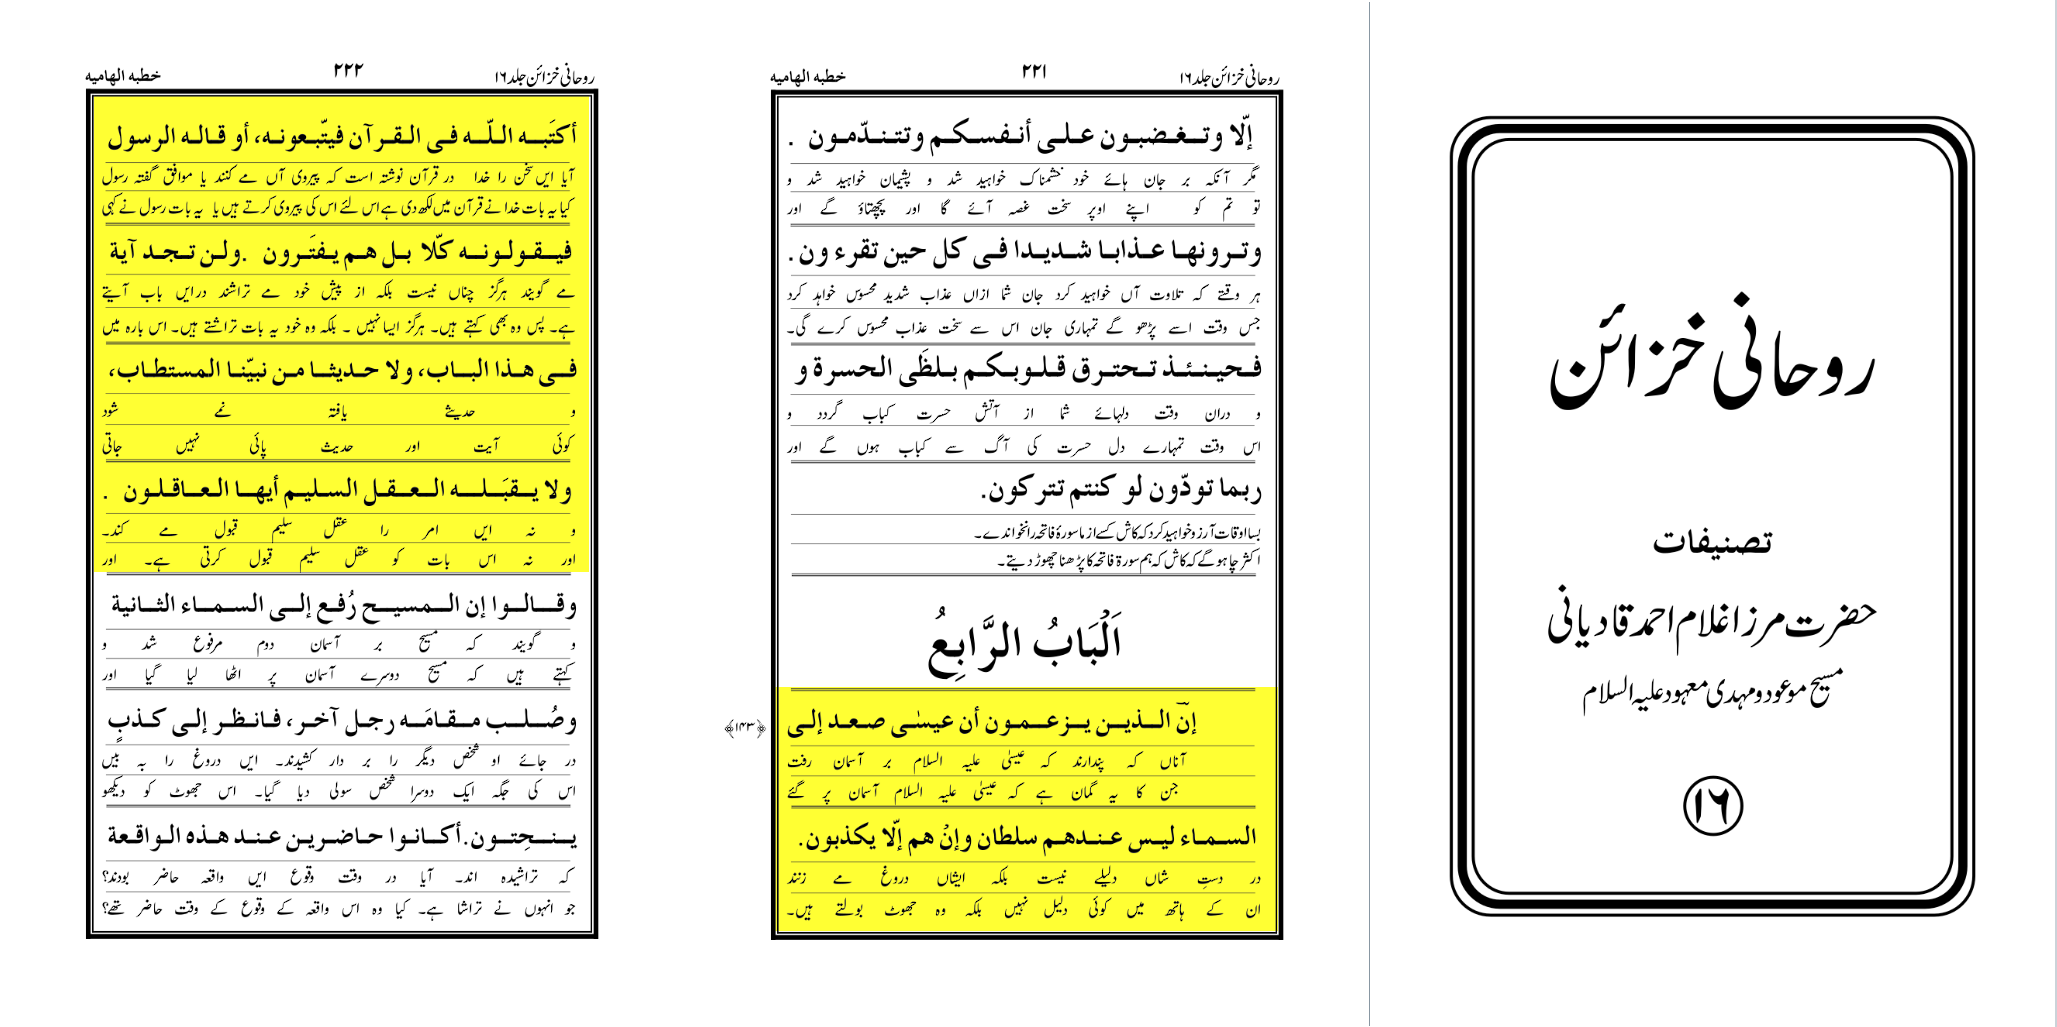 روحانی خزائن
تصنیفات
حضرت مرزا غلام احمد قادیانی
مسیح موعود و مہدی معہود علیہ السلام
۱۶
روحانی خزائن جلد ۱۶
۲۲۱
خطبہ الھامیہ
إلّا وتغضبون على أنفسكم وتتندّمون .
مگر آنکہ بر جان ہائے خود خشمناک خواہید شد و پشیمان خواہید شد و
تو تم کو اپنے اوپر سخت غصہ آئے گا اور پچھتاؤ گے اور
وترونها عذابا شديدا فى كل حين تقرء ون .
ہر وقتے کہ تلاوت آں خواہید کرد جان شما ازاں عذاب شدید محسوس خواہد کرد
جس وقت اسے پڑھو گے تمہاری جان اس سے سخت عذاب محسوس کرے گی۔
فحينئذ تحترق قلوبكم بلظَى الحسرة و
و دران وقت دلہائے شما از آتش حسرت کباب گردد و
اس وقت تمہارے دل حسرت کی آگ سے کباب ہوں گے اور
ربما تودّون لو كنتم تتركون.
بسا اوقات آرزو خواہید کرد کہ کاش کسے از ما سورۂ فاتحہ را نخواندے۔
اکثر چاہو گے کہ کاش کہ ہم سورۃ فاتحہ کا پڑھنا چھوڑ دیتے۔
اَلْبَابُ الرَّابِعُ
إنّ الذين يزعمون أن عيسٰى صعد إلى
﴿۱۴۳﴾
آناں کہ پندارند کہ عیسیٰ علیہ السلام بر آسمان رفت
جن کا یہ گمان ہے کہ عیسیٰ علیہ السلام آسمان پر گئے
السماء ليس عندهم سلطان وإنْ هم إلّا يكذبون.
در دستِ شاں دلیلے نیست بلکہ ایشاں دروغ مے زنند
ان کے ہاتھ میں کوئی دلیل نہیں بلکہ وہ جھوٹ بولتے ہیں۔
روحانی خزائن جلد ۱۶
۲۲۲
خطبہ الھامیہ
أكتَبه اللّه فى القرآن فيتّبعونه، أو قاله الرسول
آیا ایں سخن را خدا در قرآن نوشتہ است کہ پیروی آں مے کنند یا موافق گفتہ رسول
کیا یہ بات خدا نے قرآن میں لکھ دی ہے اس لئے اس کی پیروی کرتے ہیں یا یہ بات رسول نے کہی
فيقولونه كلّا بل هم يفتَرون .ولن تجد آية
مے گویند ہرگز چناں نیست بلکہ از پیش خود مے تراشند در ایں باب آیتے
ہے۔ پس وہ بھی کہتے ہیں۔ ہرگز ایسا نہیں ۔ بلکہ وہ خود یہ بات تراشتے ہیں۔ اس بارہ میں
فى هذا الباب، ولا حديثا من نبيّنا المستطاب،
و حدیثے یافتہ نمے شود
کوئی آیت اور حدیث پائی نہیں جاتی
ولا يقبَله العقل السليم أيها العاقلون .
و نہ ایں امر را عقل سلیم قبول مے کند۔
اور نہ اس بات کو عقل سلیم قبول کرتی ہے۔ اور
وقالوا إن المسيح رُفع إلى السماء الثانية
و گویند کہ مسیح بر آسمان دوم مرفوع شد و
کہتے ہیں کہ مسیح دوسرے آسمان پر اٹھا لیا گیا اور
وصُلب مقامَه رجل آخر، فانظر إلى كذبٍ
در جائے او شخص دیگر را بر دار کشیدند۔ ایں دروغ را بہ بیں
اس کی جگہ ایک دوسرا شخص سولی دیا گیا۔ اس جھوٹ کو دیکھو
ينحِتون.أكانوا حاضرين عند هذه الواقعة
کہ تراشیدہ اند۔ آیا در وقت وقوع ایں واقعہ حاضر بودند؟
جو انہوں نے تراشا ہے۔ کیا وہ اس واقعہ کے وقوع کے وقت حاضر تھے؟